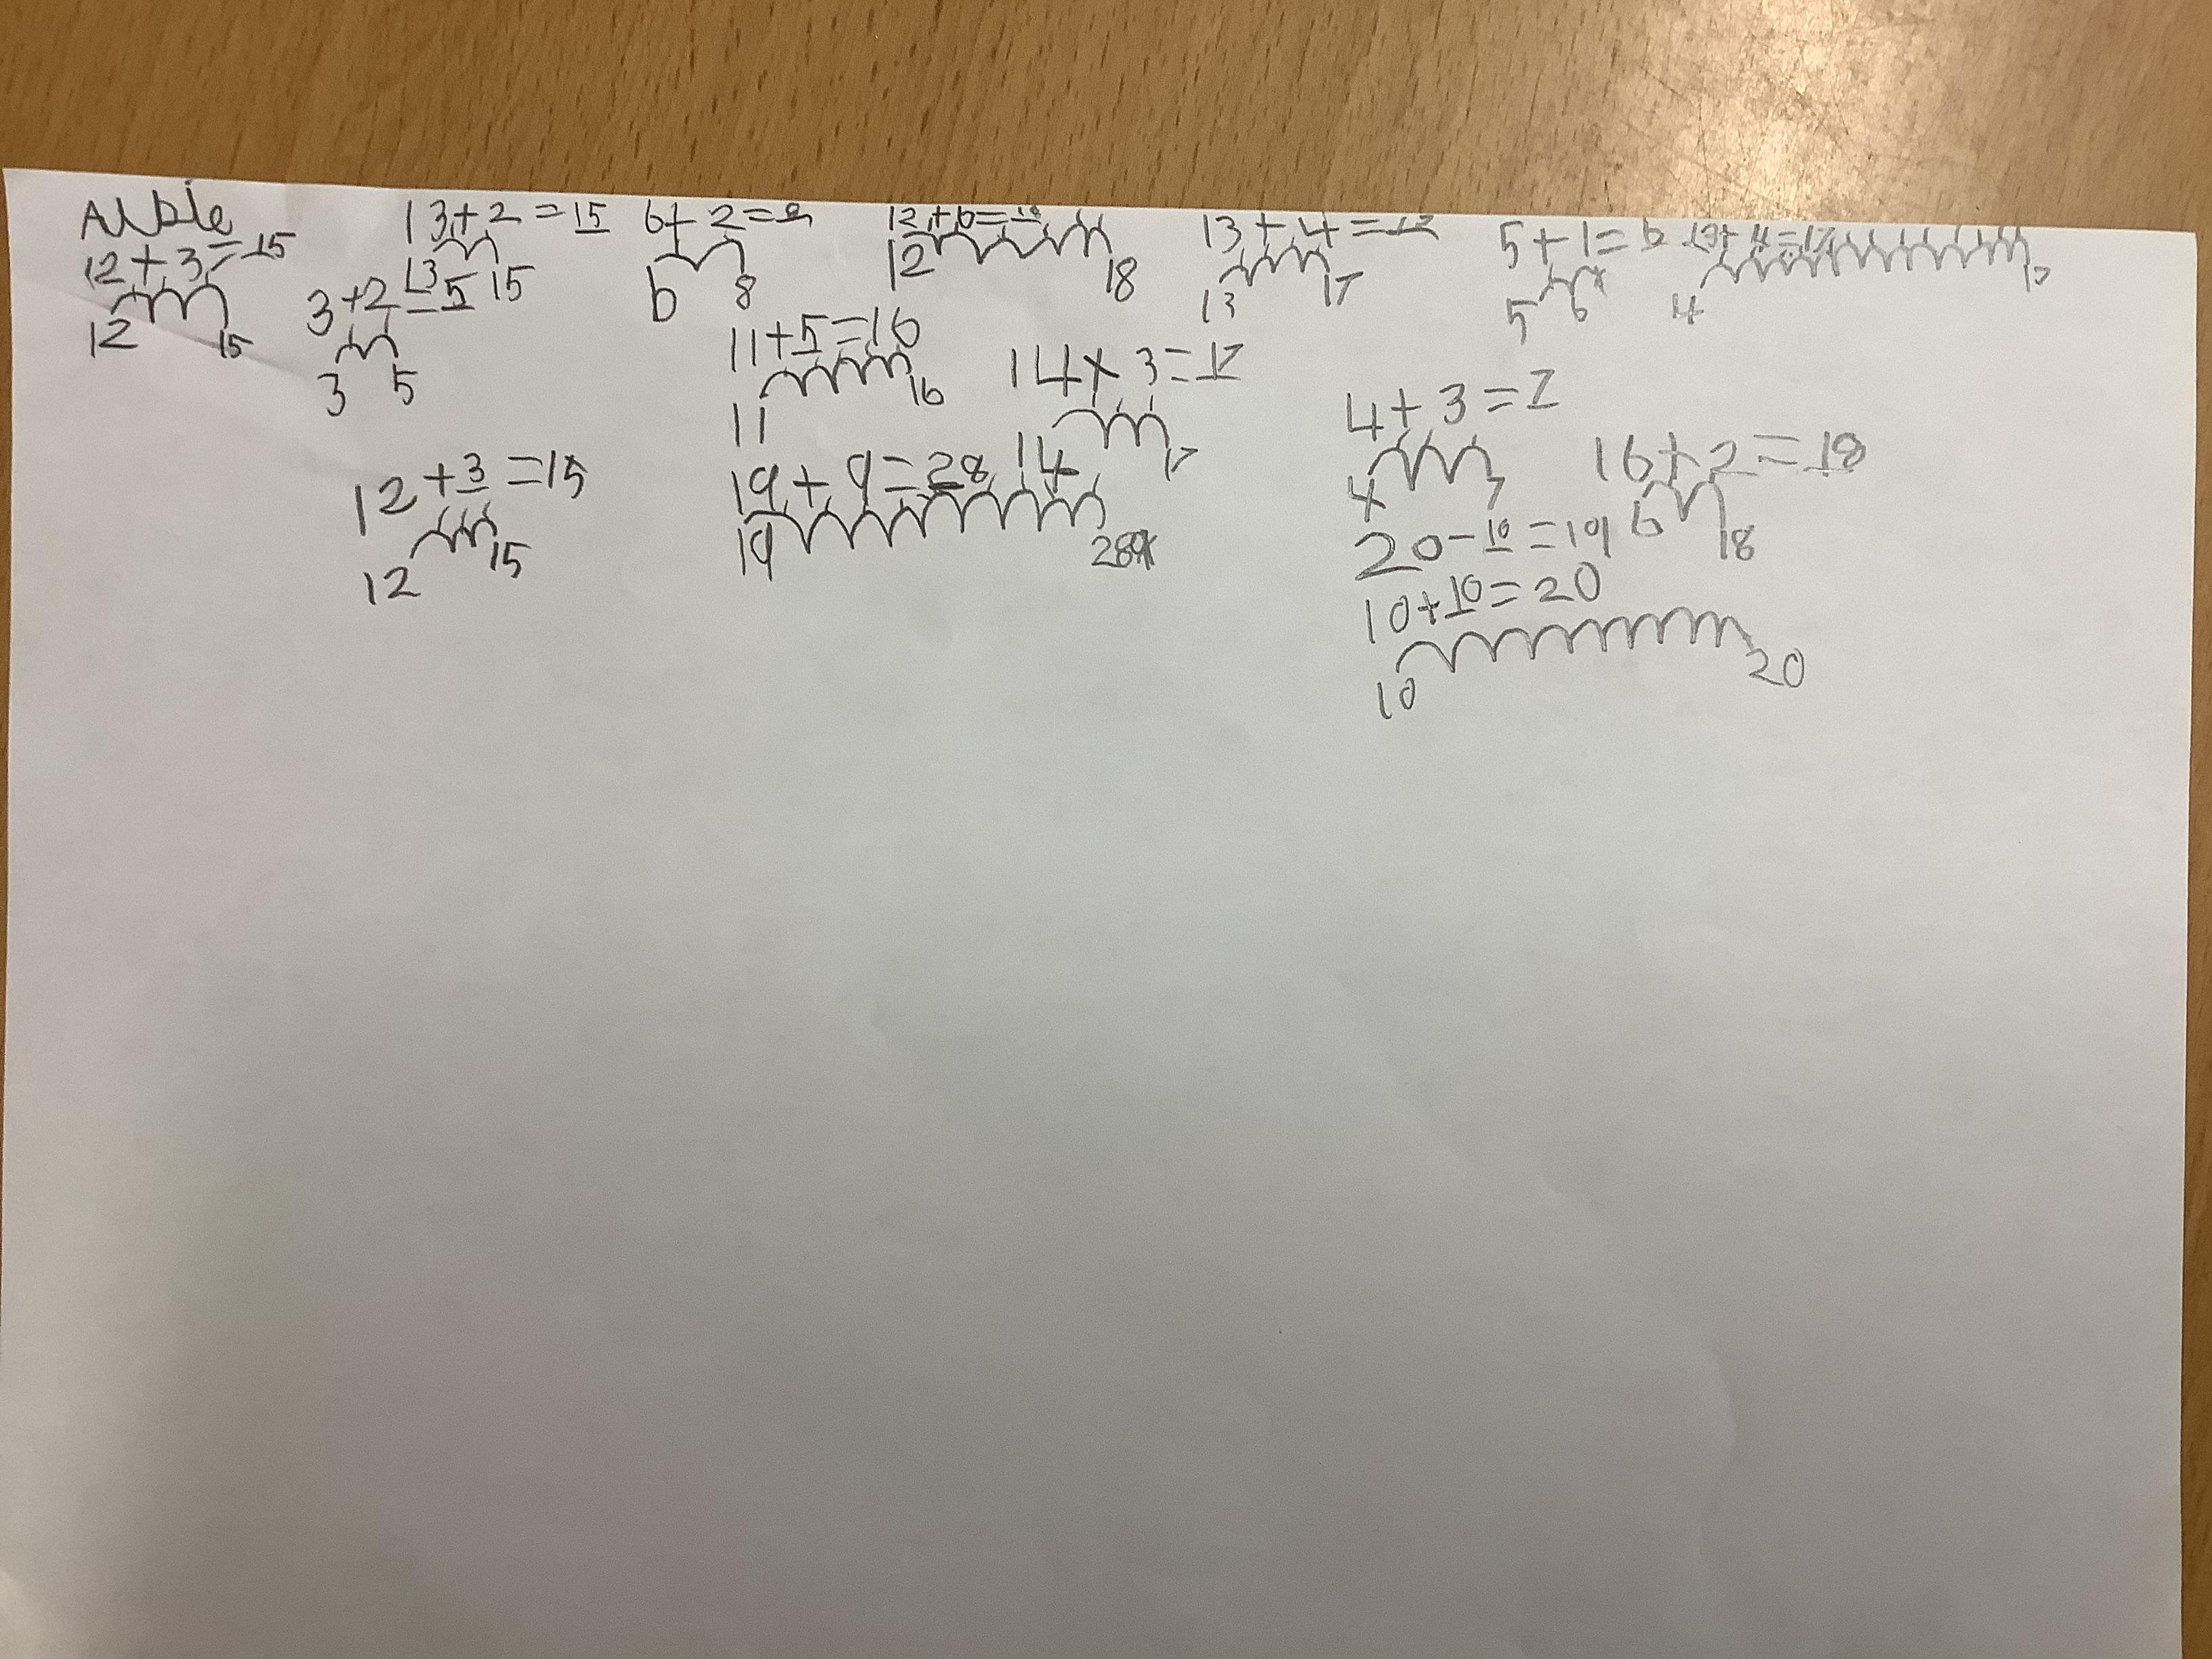 Albie
12 + 3 = 15
12 15
13 + 2 = 15
13 15
6 + 2 = 8
6 8
12 + 6 = 18
12 18
13 + 4 = 17
13 17
5 + 1 = 6
5 6
13 + 4 = 17
4 17
3 + 2 = 5
3 5
11 + 5 = 16
11 16
14 + 3 = 17
14 17
4 + 3 = 7
4 7
16 + 2 = 18
6 18
12 + 3 = 15
12 15
19 + 9 = 28
19 28
20 - 10 = 19
10 + 10 = 20
10 20